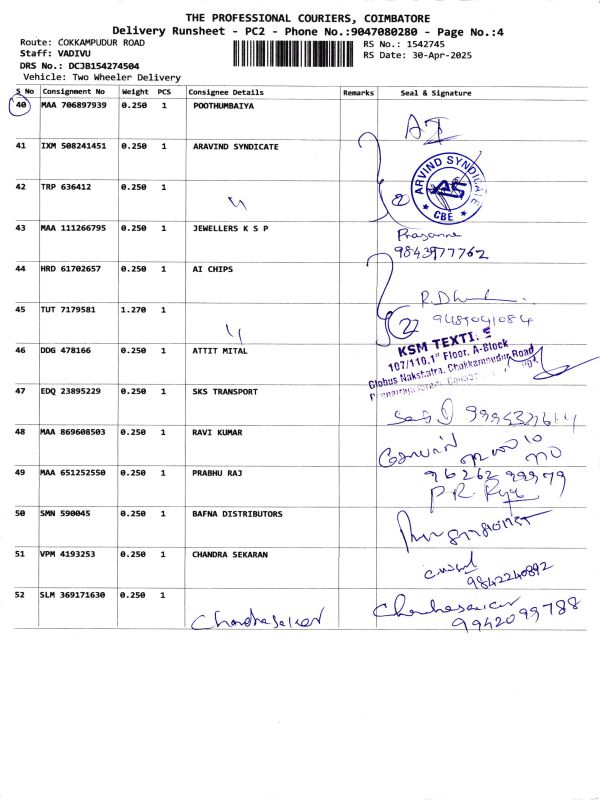 THE PROFESSIONAL COURIERS, COIMBATORE
Delivery Runsheet - PC2 - Phone No.:9047080280 - Page No.:4
Route: COKKAMPUDUR ROAD
Staff: VADIVU
DRS No.: DCJB154274504
Vehicle: Two Wheeler Delivery
RS No.: 1542745
RS Date: 30-Apr-2025
S No Consignment No Weight PCS Consignee Details Remarks Seal & Signature
40 MAA 706897939 0.250 1 POOTHUMBAIYA
41 IXM 508241451 0.250 1 ARAVIND SYNDICATE
ARVIND SYNDICATE
AS
CBE
42 TRP 636412 0.250 1
2
43 MAA 111266795 0.250 1 JEWELLERS K S P
Prasanna
9843977762
44 HRD 61702657 0.250 1 AI CHIPS
45 TUT 7179581 1.270 1
9489041084
22
46 DDG 478166 0.250 1 ATTIT MITAL
KSM TEXTI
107/110,1st Floor, A-Block
Globus Nakshatra, Chokkampudur Road
47 EDQ 23895229 0.250 1 SKS TRANSPORT
48 MAA 869608503 0.250 1 RAVI KUMAR
49 MAA 651252550 0.250 1 PRABHU RAJ
96262 99979
50 SMN 590045 0.250 1 BAFNA DISTRIBUTORS
51 VPM 4193253 0.250 1 CHANDRA SEKARAN
9842240892
52 SLM 369171630 0.250 1
Chandrasekar Chandrasekar
9942099788